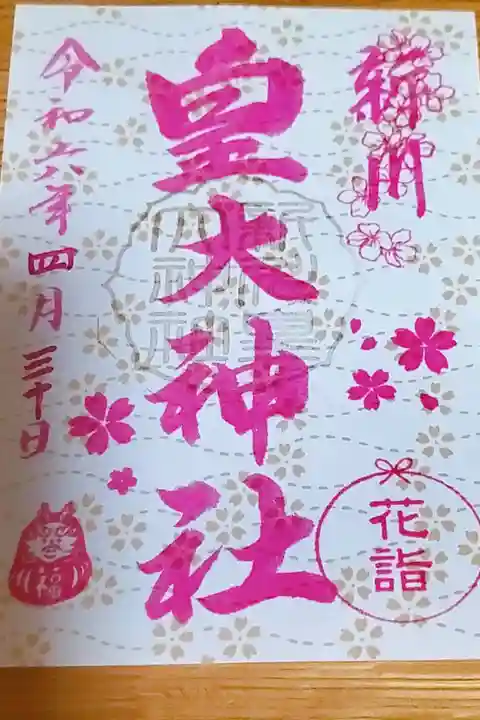 皇大神社
令和六年四月三十日
花詣
福